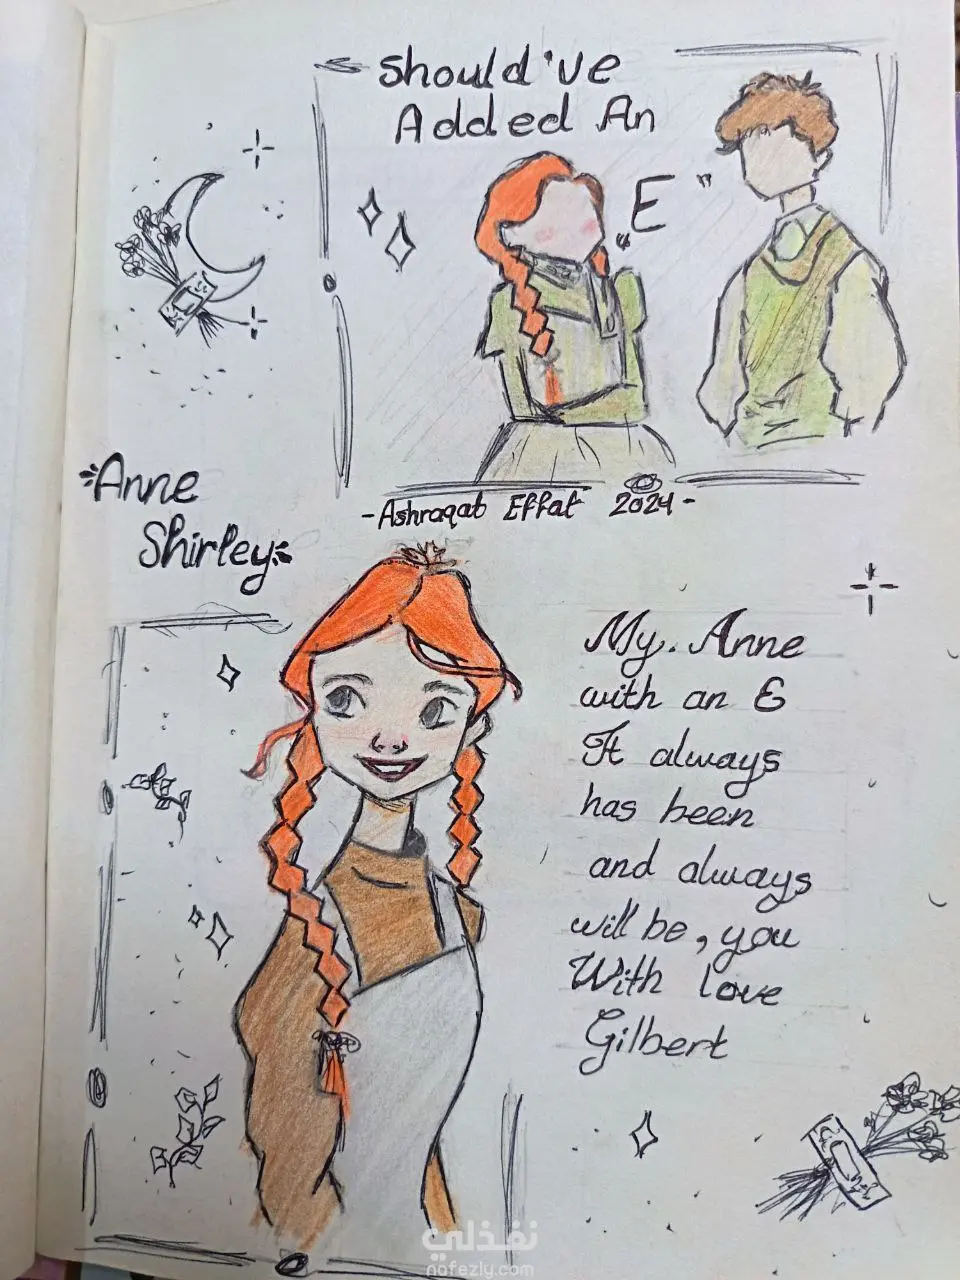 Should've
Added An
"E"
Anne
Shirley
- Ashraqat Effat 2024 -
My. Anne
with an E
It always
has been
and always
will be, you
With love
Gilbert
نفذلي
nafezly.com